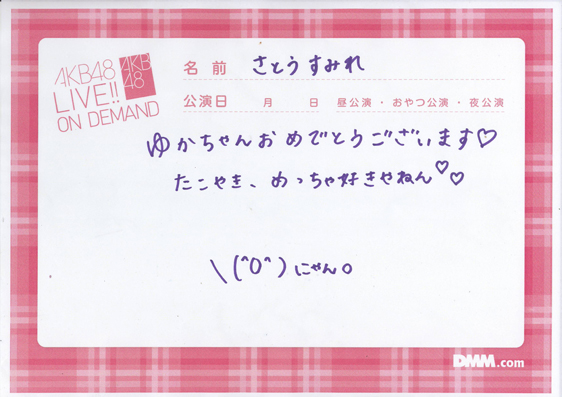 AKB48
LIVE!!
ON DEMAND
AKB
48
名 前 さとうすみれ
公演日 月 日 昼公演・おやつ公演・夜公演
ゆかちゃんおめでとうございます♡
たこやき、めっちゃ好きやねん♡♡
\(^0^)にゃん。
DMM.com